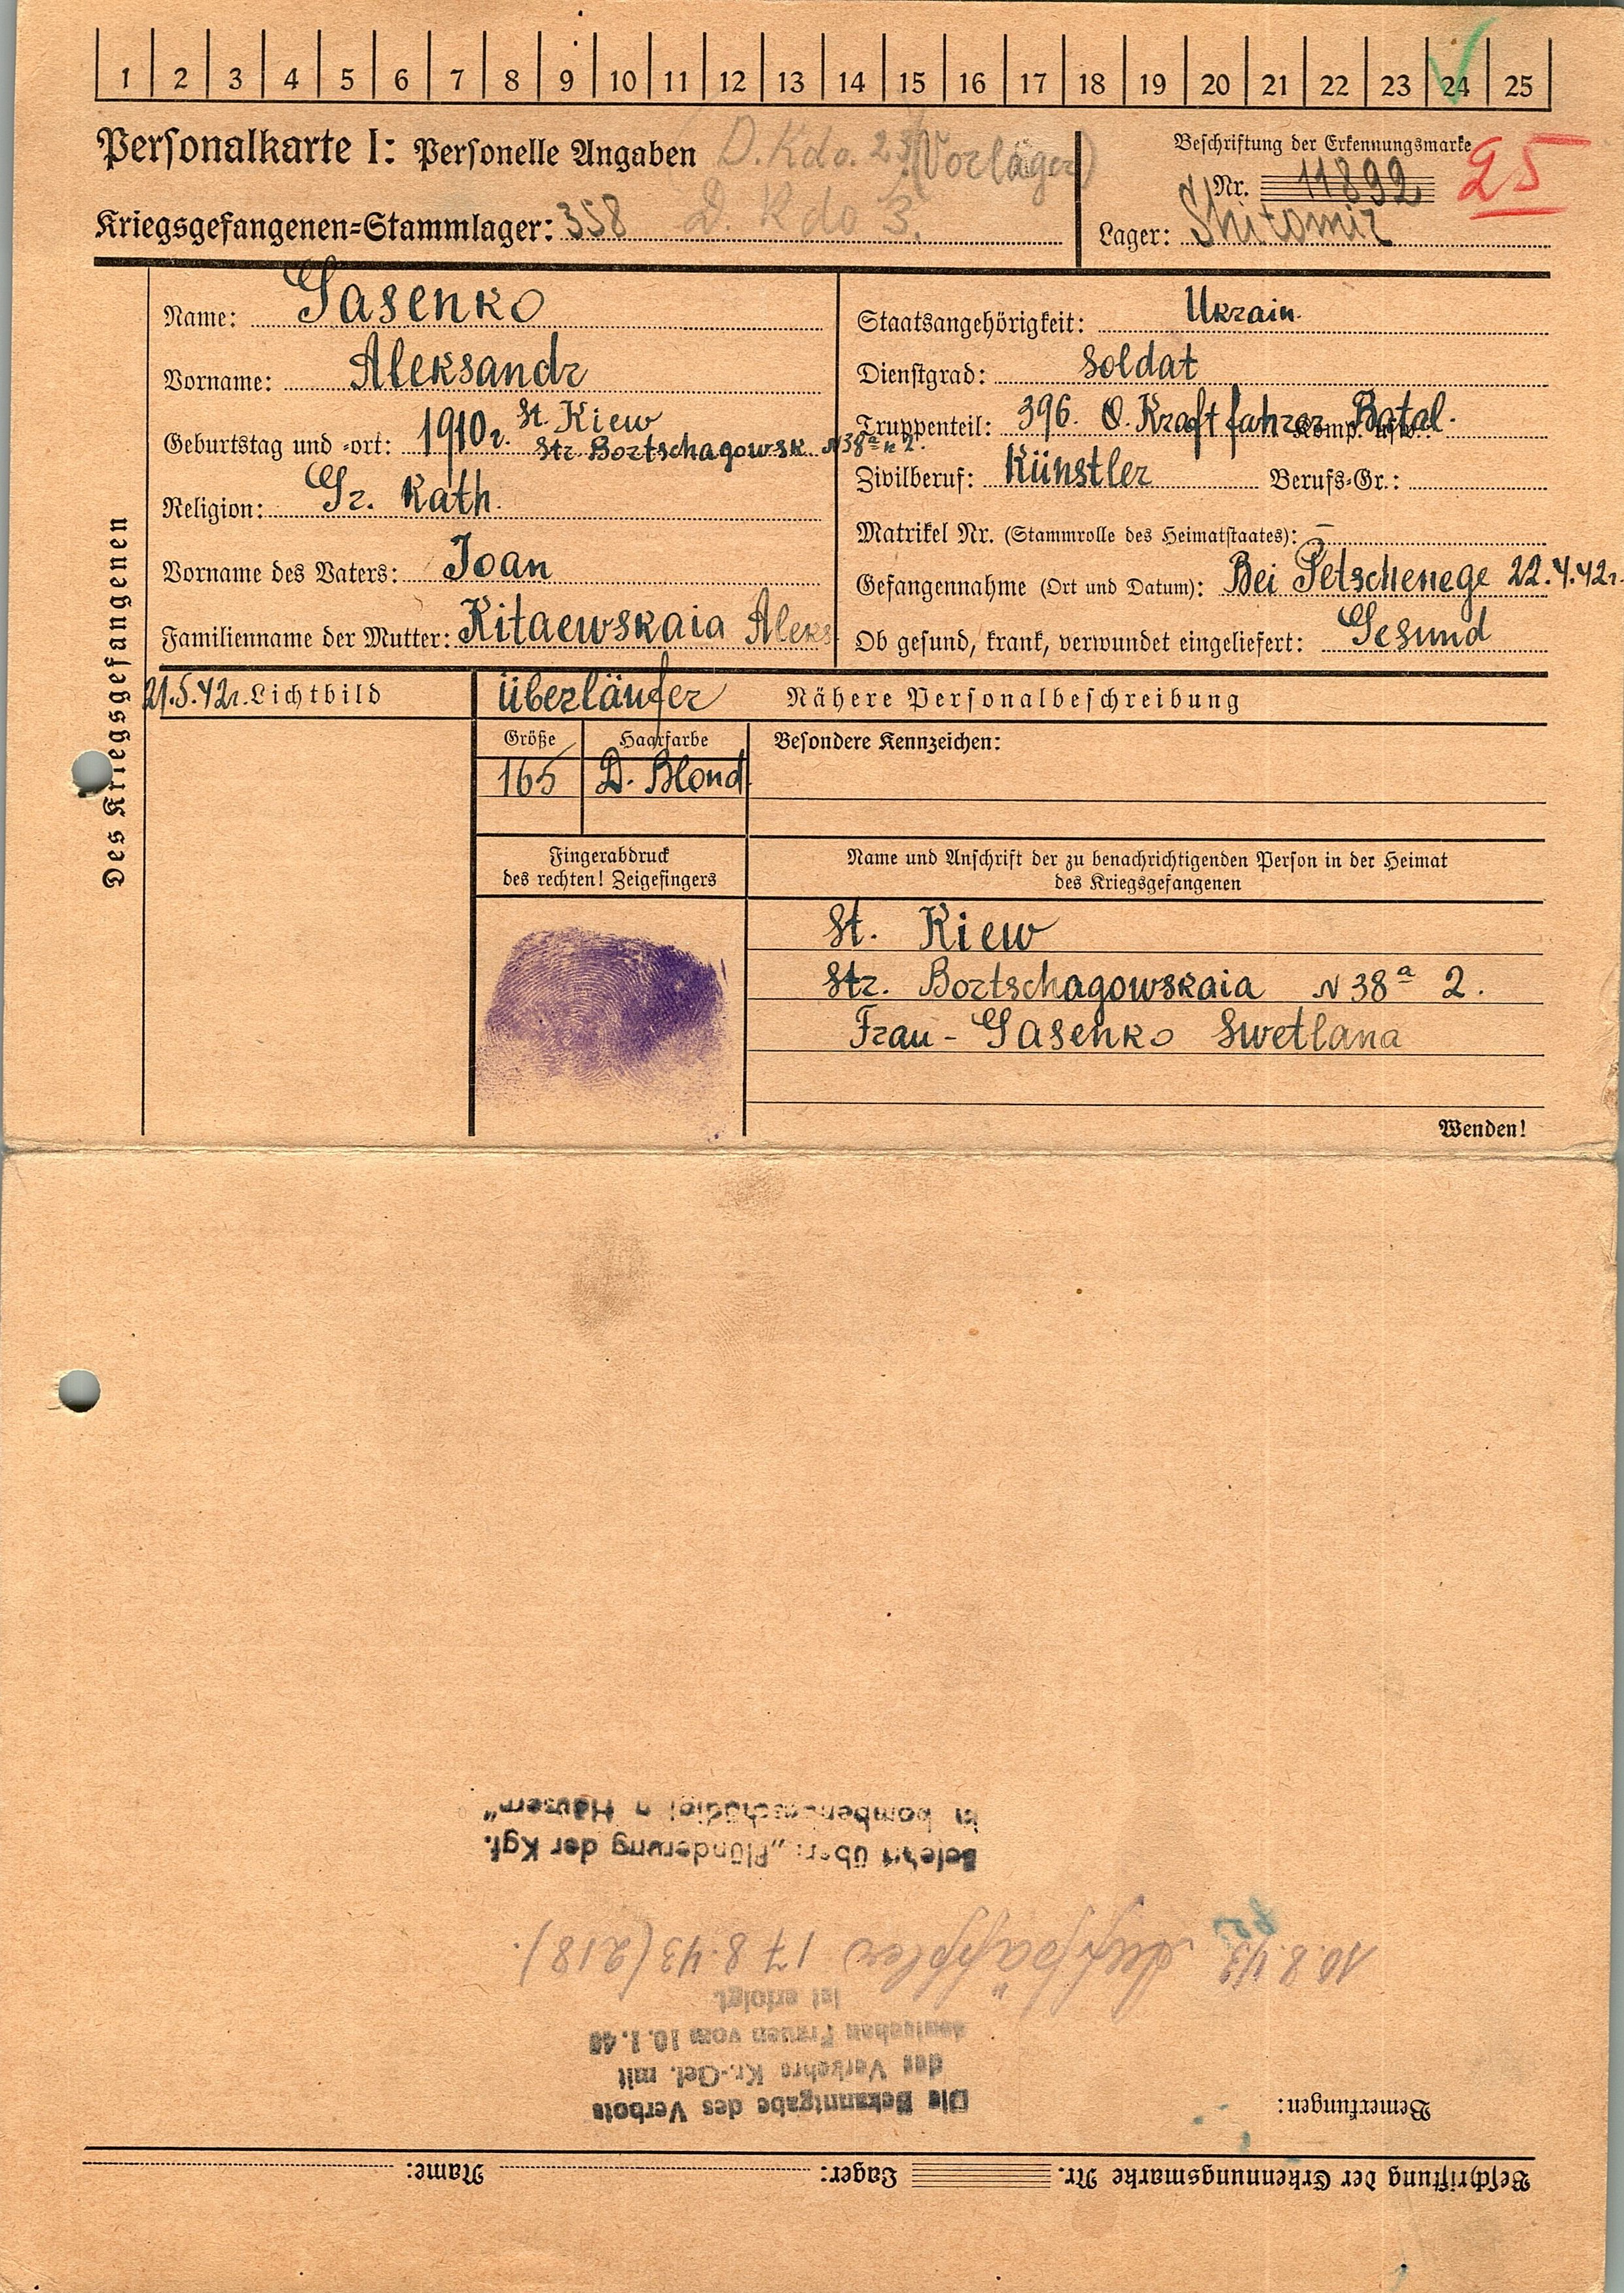 1 2 3 4 5 6 7 8 9 10 11 12 13 14 15 16 17 18 19 20 21 22 23 24 25
Personalkarte I: Personelle Angaben D. Kdo. (Vorläger)
Kriegsgefangenen=Stammlager: 358 D. Kdo 3.
Beschriftung der Erkennungsmarke
Nr. 11892 25
Lager: Shitomir
Des Kriegsgefangenen
Name: Gasenko
Vorname: Aleksandr
Geburtstag und =ort: 1910r. St. Kiew
Str. Bortschagowsk N 38ª 2.
Religion: Gr. Kath.
Vorname des Vaters: Ioan
Familienname der Mutter: Kitaewskaia Aleks
Staatsangehörigkeit: Ukrain.
Dienstgrad: Soldat
Truppenteil: 396. O. Kraftfahrer Batal. Komp. usw.:
Zivilberuf: Künstler Berufs=Gr.:
Matrikel Nr. (Stammrolle des Heimatstaates): –
Gefangennahme (Ort und Datum): Bei Petschenege 22.4.42r.
Ob gesund, krank, verwundet eingeliefert: Gesund
21.5.42r. Lichtbild
Überläufer Nähere Personalbeschreibung
Größe Haarfarbe Besondere Kennzeichen:
165 D. Blond
Fingerabdruck
des rechten! Zeigefingers
Name und Anschrift der zu benachrichtigenden Person in der Heimat
des Kriegsgefangenen
St. Kiew
Str. Bortschagowskaia N 38ª 2.
Frau - Gasenko Swetlana
Wenden!
Beschriftung der Erkennungsmarke Nr. Lager: Name:
Bemerkungen:
Die Bekanntgabe des Verbots
des Verkehrs Kr.-Gef. mit
deutschen Frauen vom 10.1.40
ist erfolgt.
10.8.43 17.8.43 (218).
Belehrt über: „Plünderung der Kgf.
in bombengeschädigten Häusern“